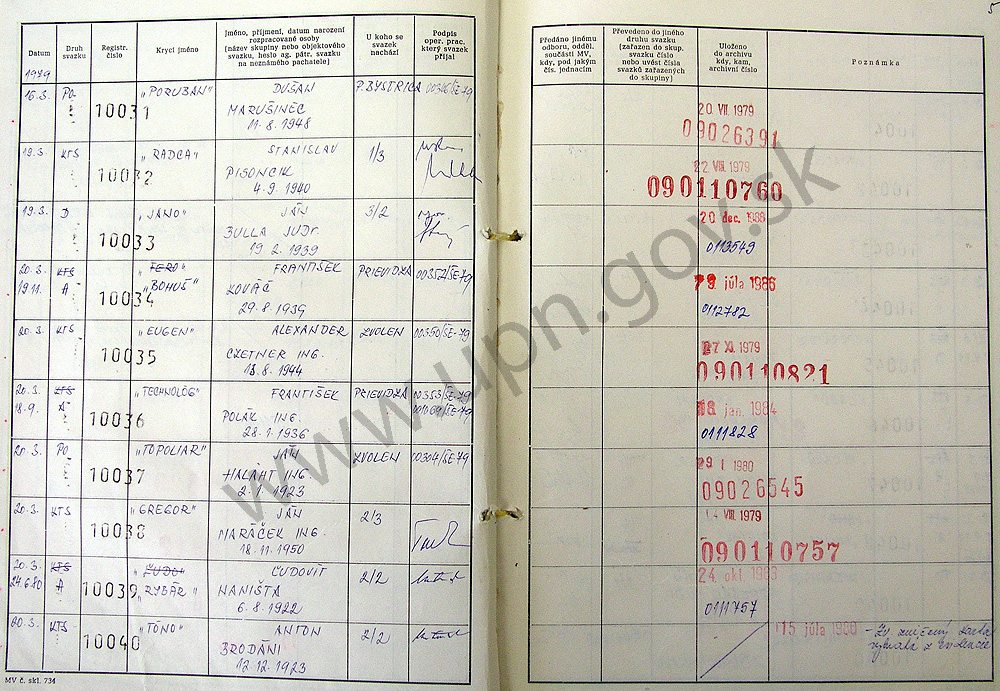 5
Datum
Druh svazku
Registr. číslo
Krycí jméno
Jméno, příjmení, datum narození rozpracované osoby (název skupiny nebo objektového svazku, heslo ag. pátr. svazku na neznámého pachatele)
U koho se svazek nachází
Podpis oper. prac. který svazek přijal
Předáno jinému odboru, odděl. součásti MV, kdy, pod jakým čís. jednacím
Převedeno do jiného druhu svazku (zařazen do skup. svazku číslo nebo uvést čísla svazků zařazených do skupiny)
Uloženo do archivu kdy, kam, archivní číslo
Poznámka
1979
16.3. PO 10031 „PORUBAN" DUŠAN P.BYSTRICA 00316/ŠE-79
MARUŠINEC
11.8.1948
20. VII. 1979
09026391
19.3. KTS 10032 „RADCA" STANISLAV 1/3
PISONČÍK
4.9.1940
22. VIII. 1979
090110760
19.3. D 10033 „JANO" JÁN 3/2
BULLA JUDr.
19.2.1939
20 dec. 1988
0113549
20.3. KTS „FERO" FRANTIŠEK PRIEVIDZA 00352/ŠE-79
19.11. A 10034 „BOHUŠ" KOVÁČ
29.8.1939
júla 1986
0112782
20.3. KTS 10035 „EUGEN" ALEXANDER ZVOLEN 00350/ŠE-79
CZETNER ING.
18.8.1944
27 XI. 1979
090110821
20.3. KTS „TECHNOLÓG" FRANTIŠEK PRIEVIDZA 00353/ŠE-79
18.9. A 10036 POLÁK ING.
28.1.1936
18 jan. 1984
0111828
20.3. PO 10037 „TOPOLIAR" JÁN ZVOLEN 00304/ŠE-79
HALAHT ING.
2.1.1923
29 I 1980
09026545
20.3. KTS 10038 „GREGOR" JÁN 2/3
MARÁČEK ING.
18.11.1950
VIII. 1979
090110757
20.3. KTS „ĽUDO" ĽUDOVÍT 2/2
24.6.80 A 10039 „RYBÁR" HANIŠTA
6.8.1922
24. okt. 1986
0111757
20.3. KTS 10040 „TÓNO" ANTON 2/2
BRODÁNI
12.12.1923
15 júla 1980
MV č. skl. 734
www.upn.gov.sk